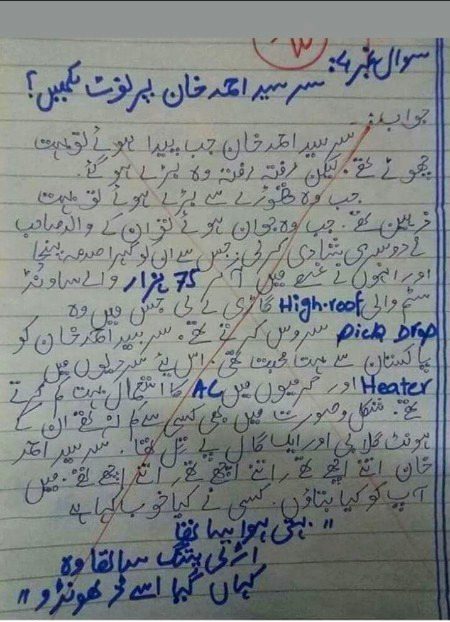 سوال نمبر 4: سر سید احمد خان پر نوٹ لکھیں؟
جواب:
سر سید احمد خان جب پیدا ہوئے تو بہت
چھوٹے تھے. لیکن رفتہ رفتہ وہ بڑے ہو گئے.
جب وہ تھوڑے سے بڑے ہوئے تو بہت
ذہین تھے. جب وہ جوان ہوئے تو ان کے والد صاحب
نے دوسری شادی کر لی. جس سے ان کو گہرا صدمہ پہنچا
اور انہوں نے غصے میں آ کر 75 ہزار والے ساونڈ
سٹم والی High-roof گاڑی لے لی جس میں وہ
Pick Drop سروس کرتے تھے. سر سید احمد خان کو
پاکستان سے بہت محبت تھی. اس لئے سردیوں میں
Heater اور گرمیوں میں AC کا استعمال بہت کم کرتے
تھے. شکل و صورت میں بھی کسی سے کم نہ تھے ان کے
ہونٹ گلابی اور ایک گال پے تل تھا. سر سید احمد
خان اتنے اچھے تھے, اتنے اچھے تھے, اتنے اچھے تھے. میں
آپ کو کیا بتاؤں. کسی نے کیا خوب کہا ہے
" بہتی ہوا سا تھا
اڑتی پتنگ سا تھا وہ
کہاں گیا اسے ڈھونڈو "